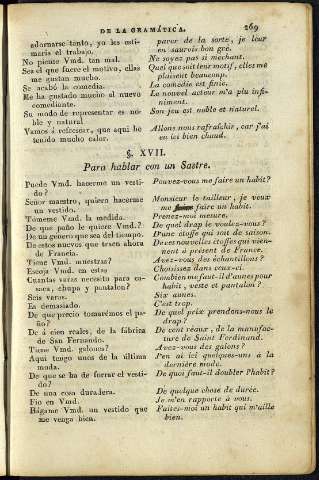 DE LA GRAMÁTICA. 269
adornarse tanto, yo les estimaria el trabajo.
No piense Vmd. tan mal.
Sea el que fuere el motivo, ellas me gustan mucho.
Se acabó la comedia.
Me ha gustado mucho el nuevo comediante.
Su modo de representar es noble y natural
Vamos á refrescar, que aqui he tenido mucho calor.
parer de la sorte, je leur en saurois bon gré.
Ne soyez pas si mechant.
Quel que soit leur motif, elles me plaisent beaucoup.
La comédie est finie.
Le nouvel acteur m'a plu infiniment.
Son jeu est noble et naturel.
Allons nous rafraîchir, car j'ai en ici bien chaud.
§. XVII.
Para hablar con un Sastre.
Puede Vmd. hacerme un vestido?
Señor maestro, quiero hacerme un vestido.
Tómeme Vmd. la medida.
De que paño le quiere Vmd.?
De un genero que sea del tiempo.
De estos nuevos que traen ahora de Francia.
Tiene Vmd. muestras?
Escoja Vmd. en estas
Cuantas varas necesito para casaca, chupa y pantalon?
Seis varas.
Es demasiado.
De que precio tomarémos el paño?
De á cien reales, de la fábrica de San Fernando.
Tiene Vmd. galones?
Aqui tengo unos de la última moda.
De que se ha de forrar el vestido?
De una cosa duradera.
Fio en Vmd.
Hágame Vmd. un vestido que me venga bien.
Pouvez-vous me faire un habit?
Monsieur le tailleur, je veux me faire un habit.
Prenez-moi mesure.
De quel drap le voulez-vous?
D'une étoffe qui soit de saison.
De ces nouvelles étoffes qui viennent à présent de France.
Avez-vous des échantillons?
Choisissez dans ceux-ci.
Combien me faut-il d'aunes pour habit, veste et pantalon?
Six aunes.
C'est trop.
De quel prix prendrons-nous le drap?
De cent réaux, de la manufacture de Saint Ferdinand.
Avez-vous des galons?
J'en ai ici quelques-uns à la dernière mode.
De quoi faut-il doubler l'habit?
De quelque chose de durée.
Je m'en rapporte à vous.
Faites-moi un habit qui m'aille bien.